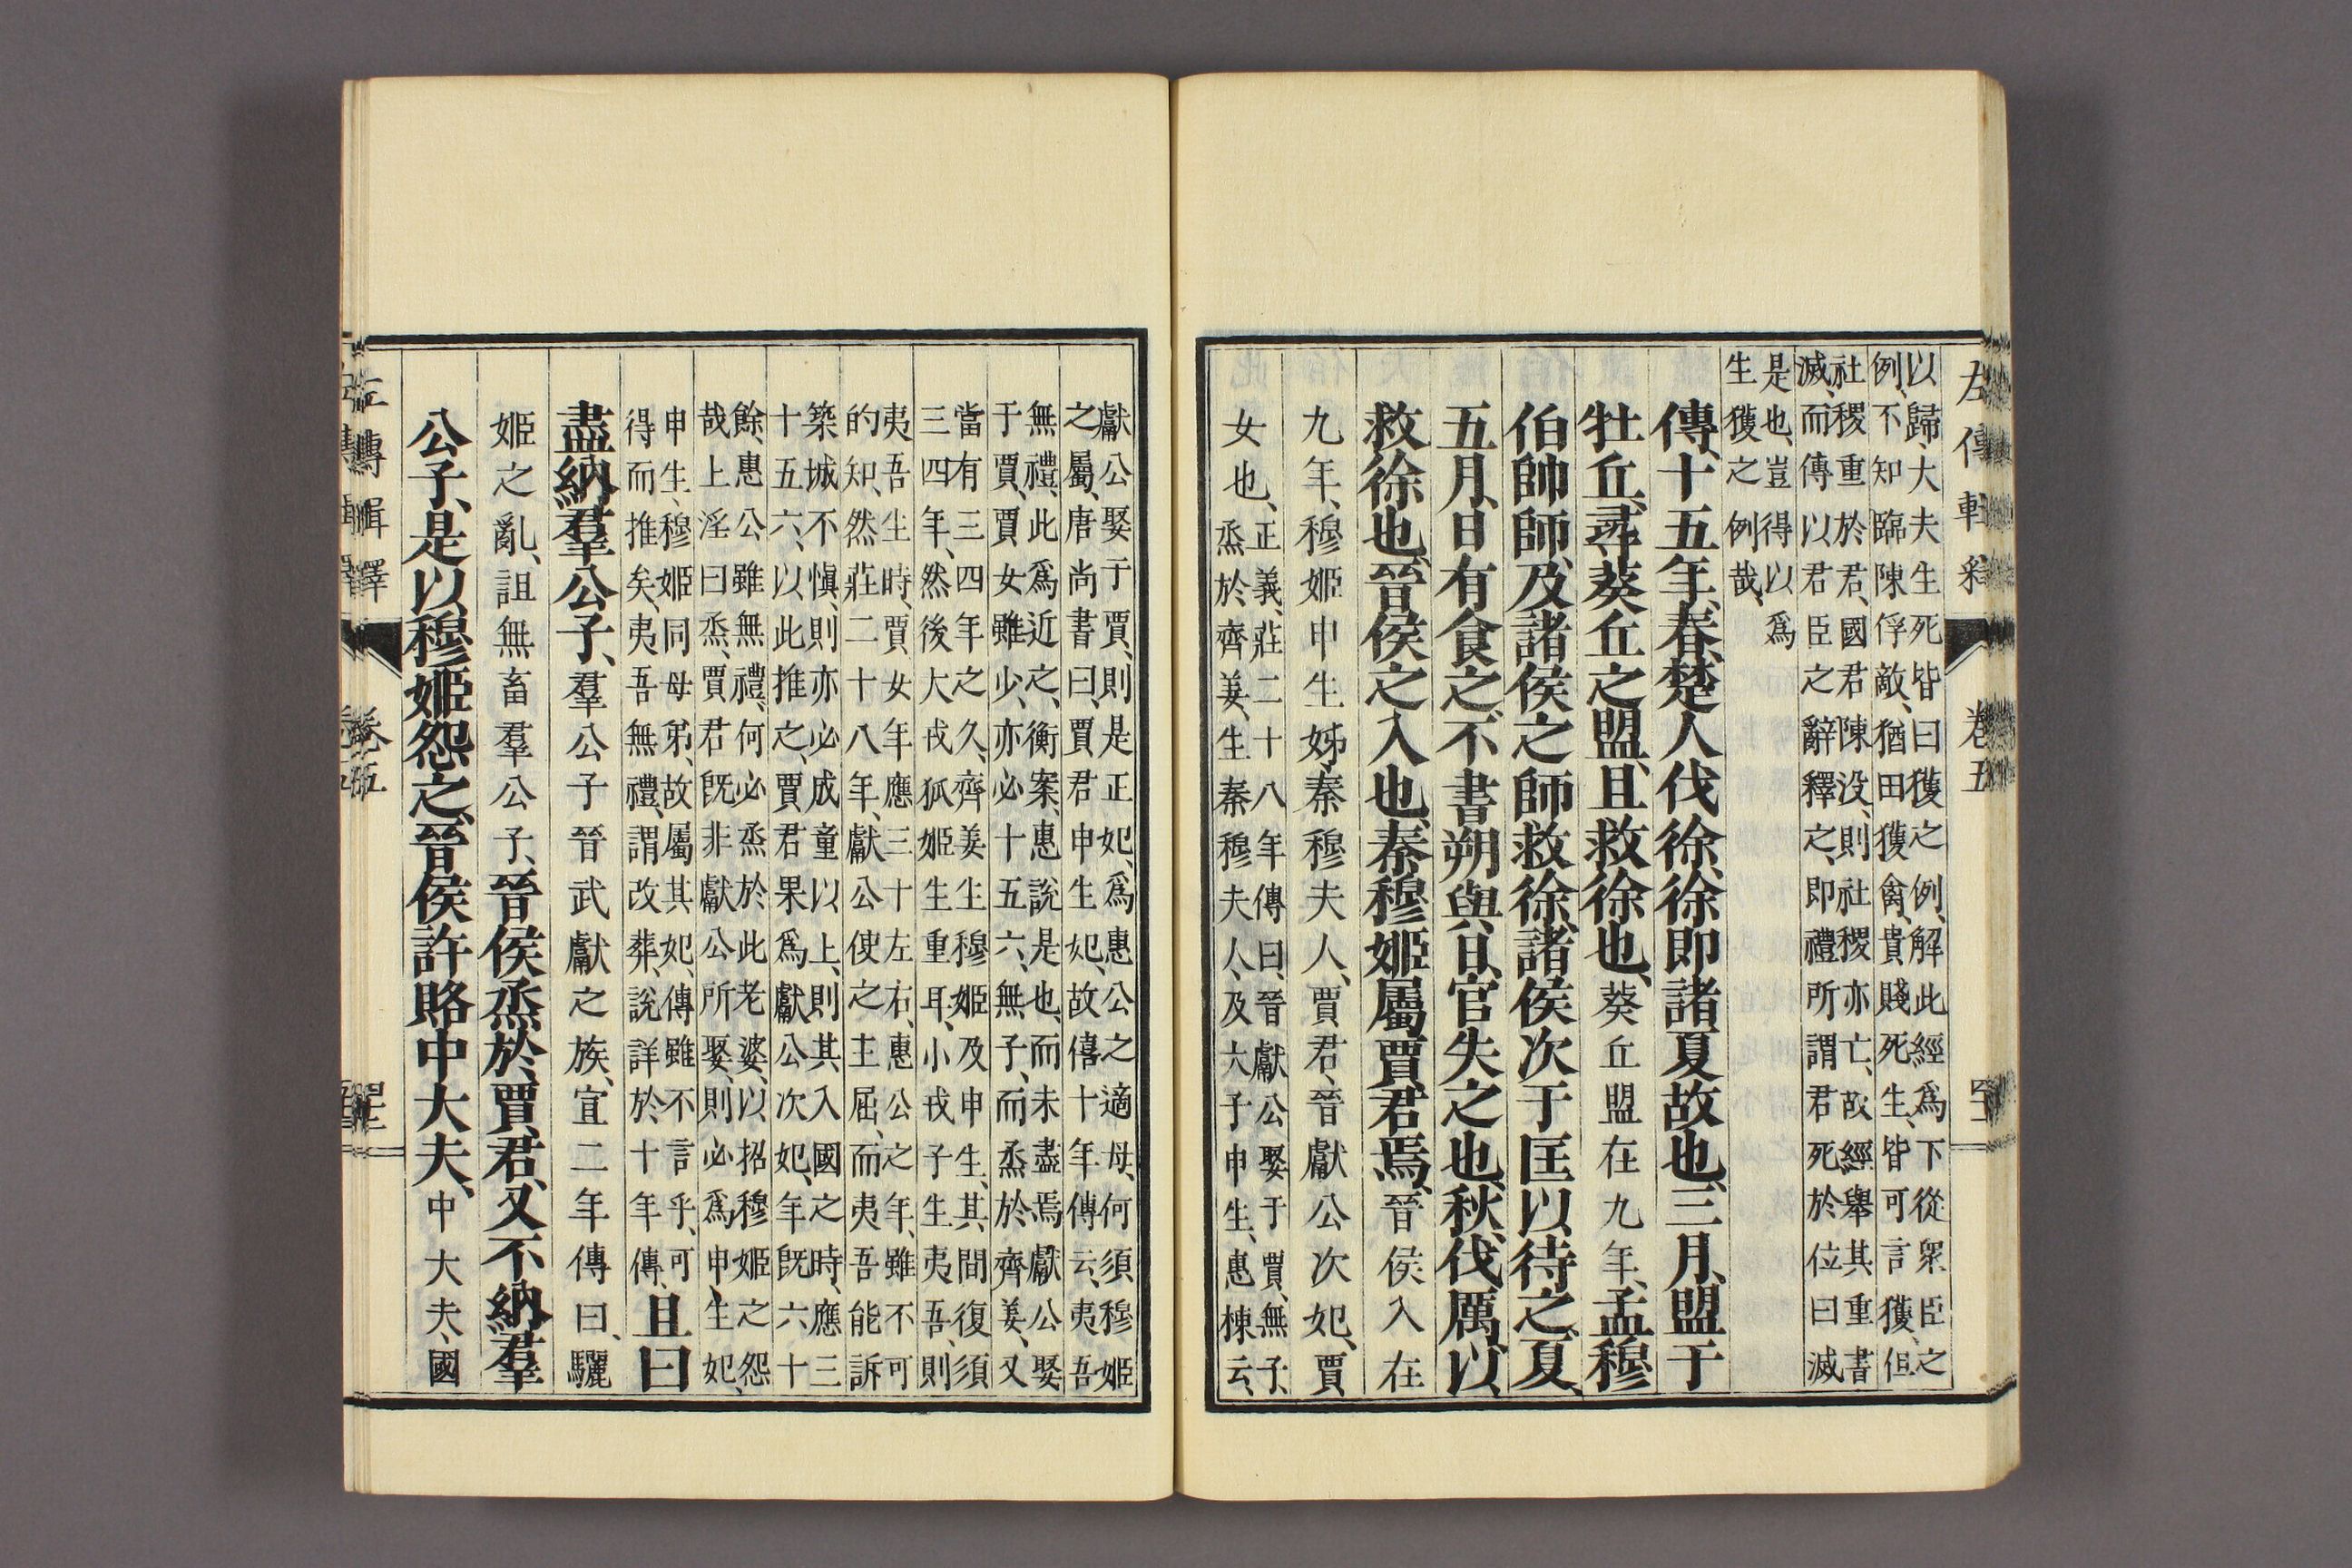 左傳輯釋
卷五
以歸、大夫生死皆曰獲之例、解此經爲下從衆臣之
例、不知臨陳俘敵、猶田獲禽、貴賤死生、皆可言獲、但
社稷重於君、國君陳没、則社稷亦亡、故經舉其重書
滅、而傳以君臣之辭釋之、即禮所謂君死於位曰滅
是也、豈得以爲
生獲之例哉、
傳、十五年、春、楚人伐徐、徐即諸夏故也、三月、盟于
牡丘、尋葵丘之盟、且救徐也、葵丘盟在九年、孟穆
伯帥師、及諸侯之師救徐、諸侯次于匡以待之、夏、
五月、日有食之、不書朔與日、官失之也、秋、伐厲、以
救徐也、晉侯之入也、秦穆姬屬賈君焉、晉侯入在
九年、穆姬申生姊、秦穆夫人、賈君、晉獻公次妃、賈
女也、正義、莊二十八年傳曰、晉獻公娶于賈、無子、
烝於齊姜、生秦穆夫人、及大子申生、惠棟云、
獻公娶于賈、則是正妃、爲惠公之適母、何須穆姬
之屬、唐尚書曰、賈君申生妃、故僖十年傳云、夷吾
無禮、此爲近之、衡案、惠說是也、而未盡焉、獻公娶
于賈、賈女雖少、亦必十五六、無子、而烝於齊姜、又
當有三四年之久、齊姜生穆姬及申生、其間復須
三四年、然後大戎狐姬生重耳、小戎子生夷吾、則
夷吾生時、賈女年應三十左右、惠公之年、雖不可
的知、然莊二十八年、獻公使之主屈、而夷吾能訴
築城不愼、則亦必成童以上、則其入國之時、應三
十五六、以此推之、賈君果爲獻公次妃、年既六十
餘、惠公雖無禮、何必烝於此老婆、以招穆姬之怨
哉、上淫曰烝、賈君既非獻公所娶、則必爲申生妃、
申生、穆姬同母弟、故屬其妃、傳雖不言乎、可
得而推矣、夷吾無禮、謂改葬、說詳於十年傳、且曰
盡納羣公子、羣公子晉武獻之族、宣二年傳曰、驪
姬之亂、詛無畜羣公子、晉侯烝於賈君、又不納羣
公子、是以穆姬怨之、晉侯許賂中大夫、中大夫、國
左傳輯釋
卷五